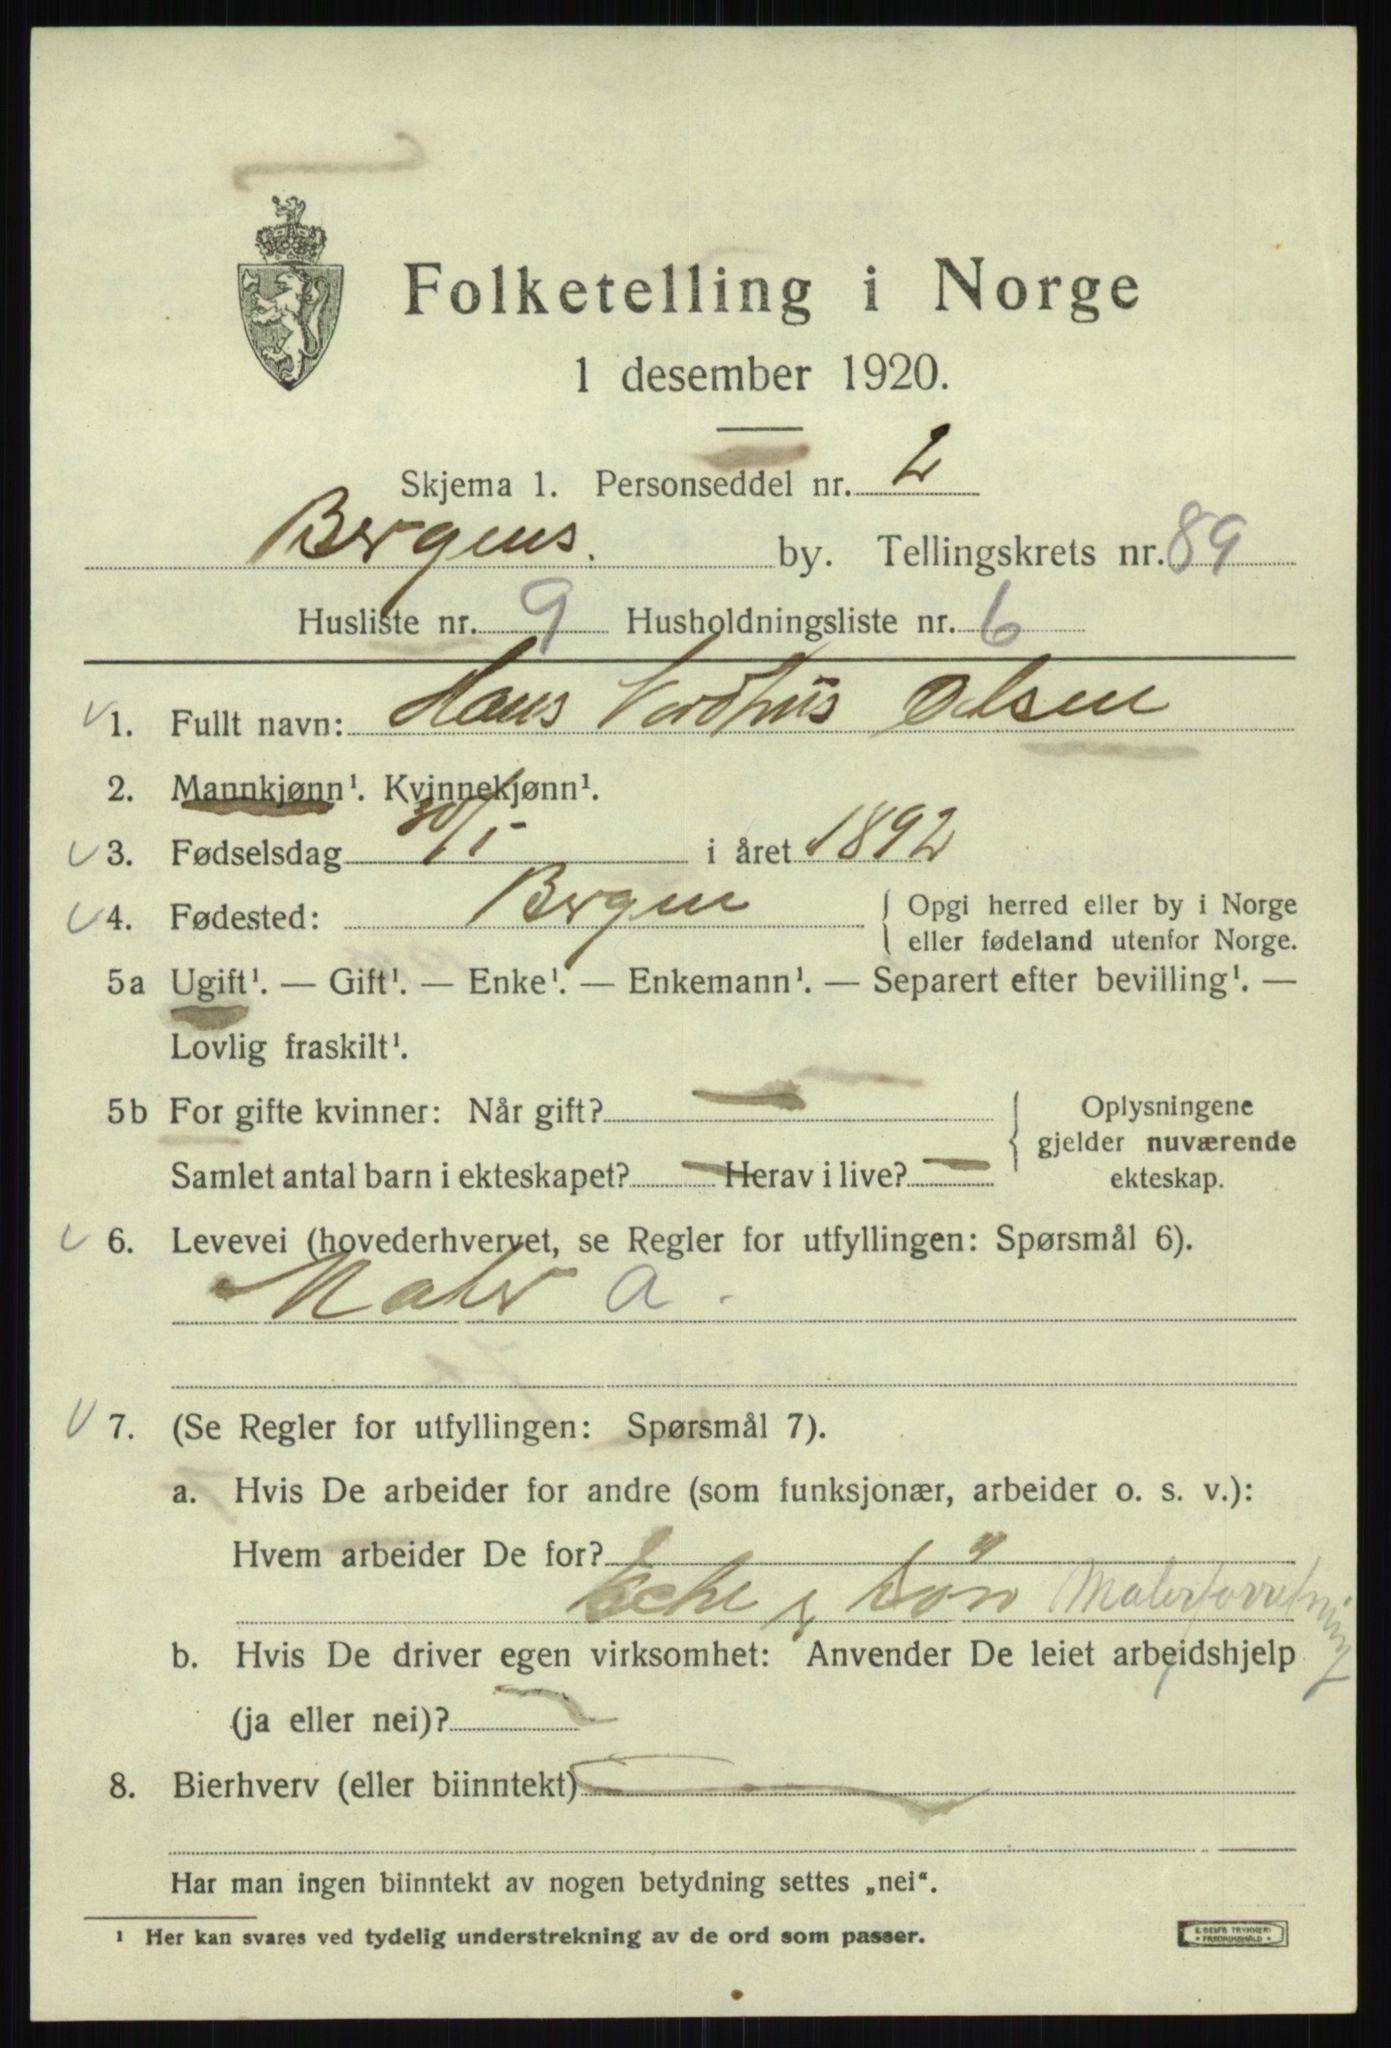 Folketelling i Norge
1 desember 1920.
Skjema 1. Personseddel nr. 2
Bergens. by. Tellingskrets nr. 89
Husliste nr. 9 Husholdningsliste nr. 6
1. Fullt navn: Hans Olsen
2. Mannkjønn¹. Kvinnekjønn¹.
3. Fødselsdag 30/1 - i året 1892
4. Fødested: Bergen { Opgi herred eller by i Norge
eller fødeland utenfor Norge.
5a Ugift¹. — Gift¹. — Enke¹. — Enkemann¹. — Separert efter bevilling¹. —
Lovlig fraskilt¹.
5b For gifte kvinner: Når gift? — } Oplysningene
gjelder nuværende
Samlet antal barn i ekteskapet? — Herav i live? — ekteskap.
6. Levevei (hovederhvervet, se Regler for utfyllingen: Spørsmål 6).
Maler a.
7. (Se Regler for utfyllingen: Spørsmål 7).
a. Hvis De arbeider for andre (som funksjonær, arbeider o. s. v.):
Hvem arbeider De for?
& Søn Malerforretning
b. Hvis De driver egen virksomhet: Anvender De leiet arbeidshjelp
(ja eller nei)? —
8. Bierhverv (eller biinntekt) —
Har man ingen biinntekt av nogen betydning settes „nei“.
¹ Her kan svares ved tydelig understrekning av de ord som passer.